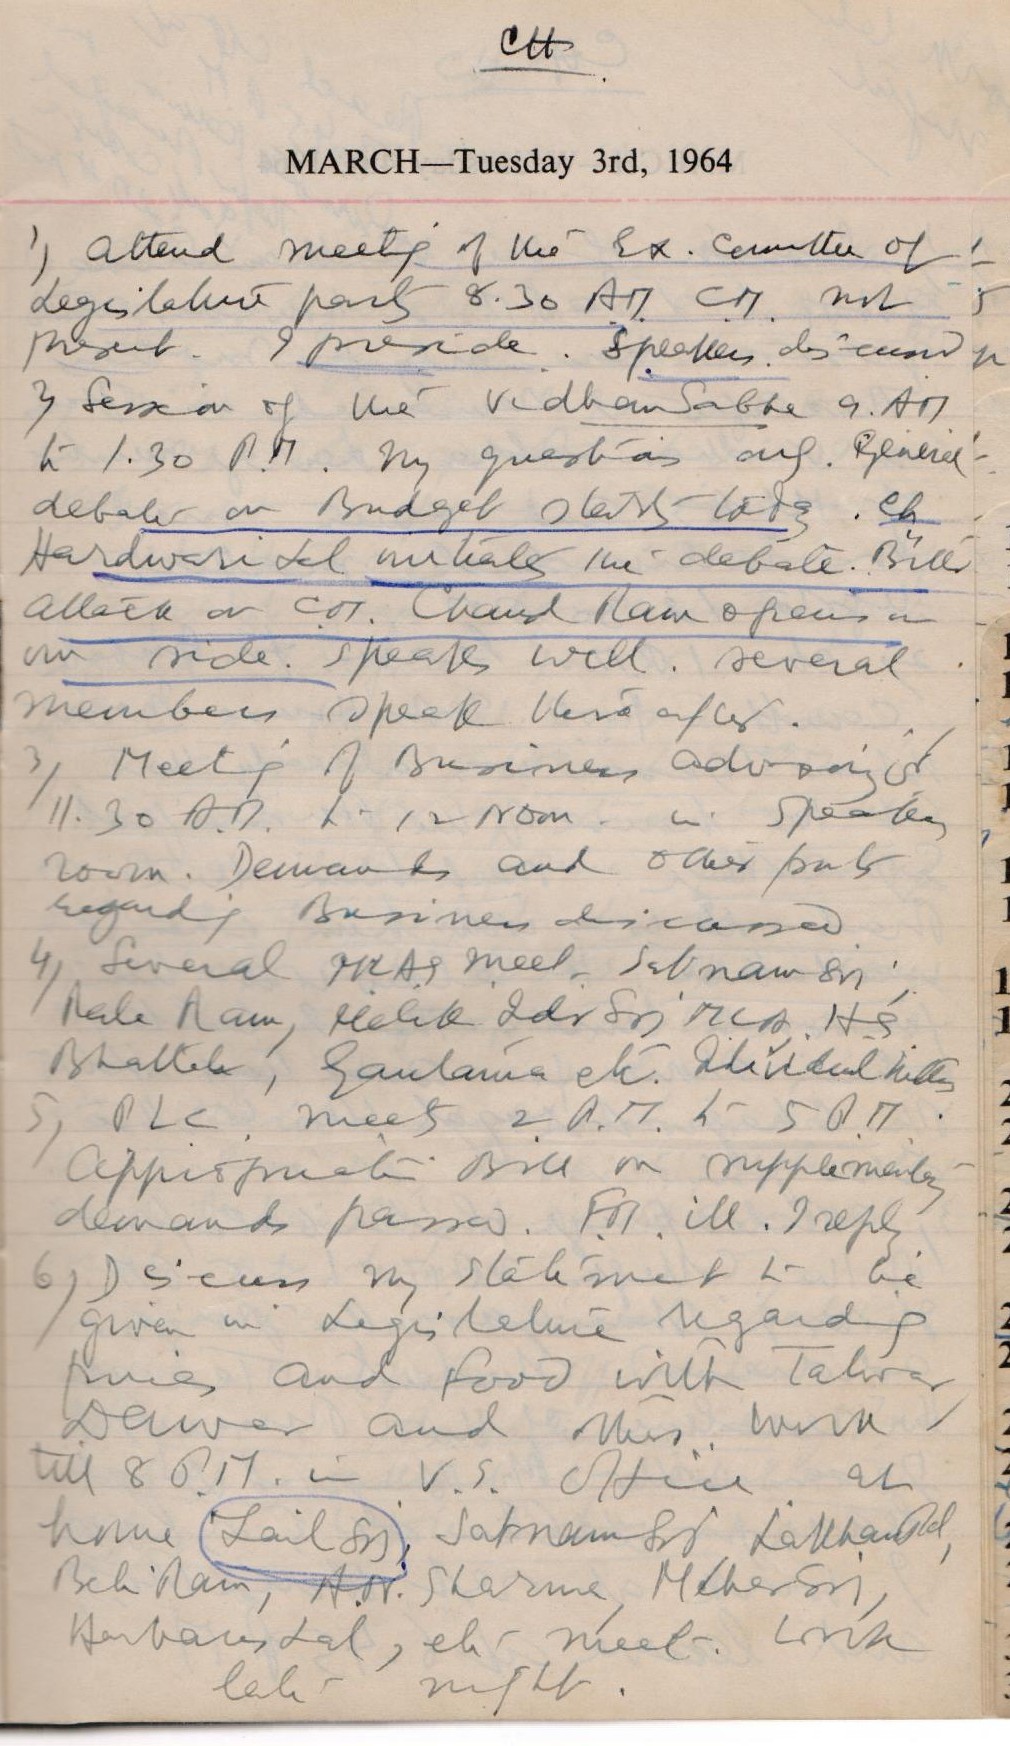 CH
MARCH—Tuesday 3rd, 1964
1) Attend meeting of the Ex. Committee of
Legislature party 8.30 AM CM. not
present. I preside. Speakers discussed
2) Session of the Vidhan Sabha 9. AM
to 1.30 P.M. My questions and. General
debate on Budget starts today. Ch
Hardwari Lal initiates the debate. Bitter
attack on CM. Chand Ram opens on
our side. Speaks well. several
members speak thereafter.
3) Meeting of Business advisory
11.30 A.M. to 12 Noon. in Speakers
room. Demands and other points
regarding Business discussed
4) Several MLAs meet. Satnam Singh,
Rala Ram, MLA. H.S
Gautama etc.
5) P L C. meets 2 P.M. to 5 P.M.
Appropriation Bill on supplementary
demands passed. F.M. ill. I reply
6) Discuss my statement to be
given in Legislature regarding
prices and food with Talwar
Dawar and others. Work
till 8 P.M. in V.S. Office at
home Zail Singh, Satnam Singh
Beli Ram, A.N. Sharma, Meher Singh,
Harbans Lal, etc meet. Work
late night.